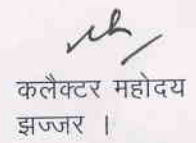 कलैक्टर महोदय
झज्जर ।